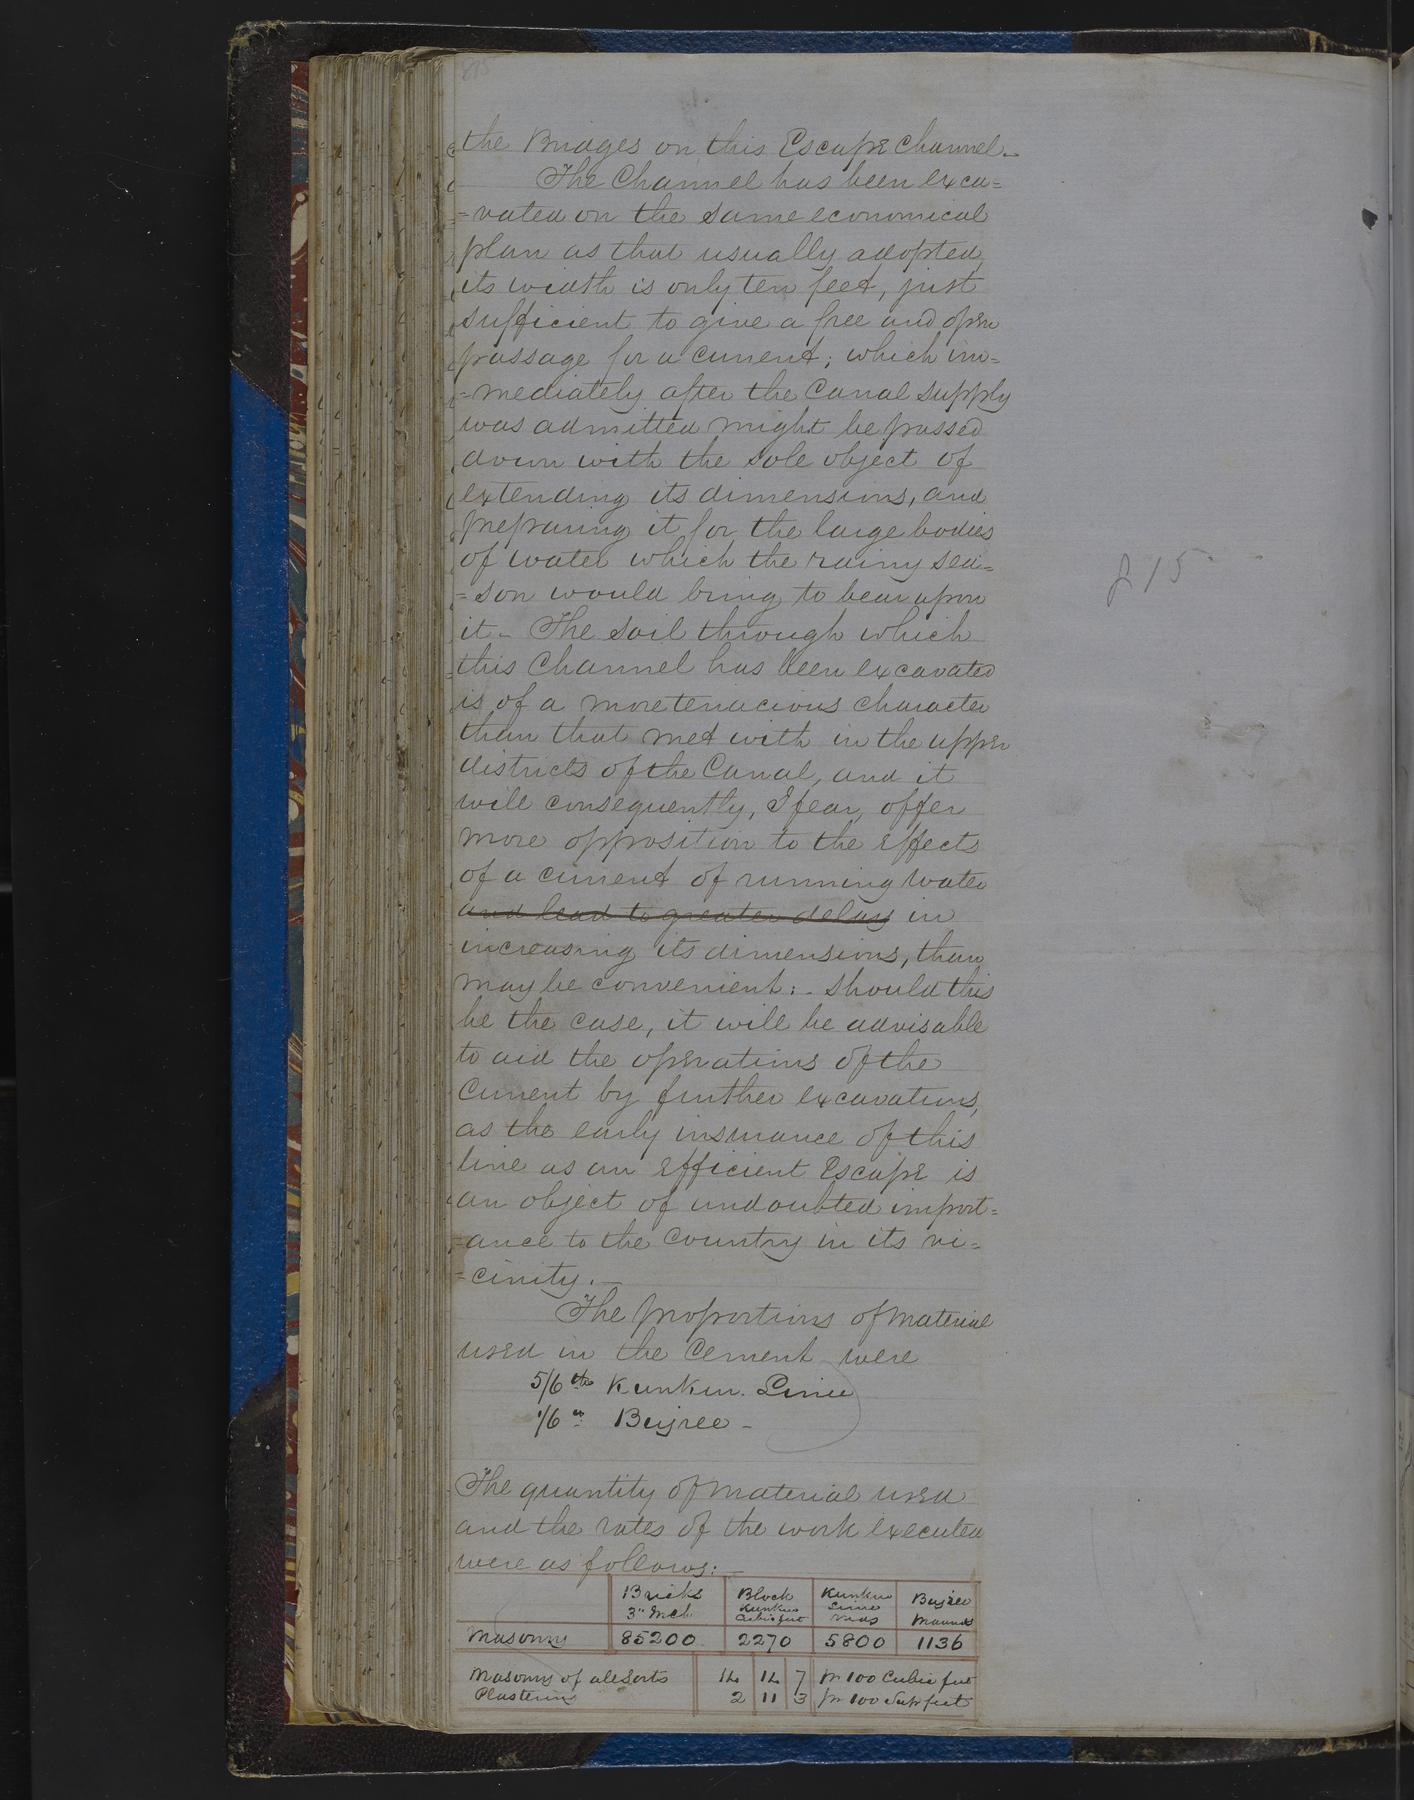 the Bridges on this Escape Channel.
The Channel has been exca=
=vated on the same economical
plan as that usually adopted,
its width is only ten feet, just
sufficient to give a free and open
passage for a current; which im=
=mediately after the Canal supply
was admitted might be passed
down with the sole object of
extending its dimensions, and
preparing it for the large bodies
of water which the rainy sea=
=son would bring to bear upon
it. The soil through which
this Channel has been excavated
is of a more tenacious character
than that met with in the upper
districts of the Canal, and it
will consequently, I fear, offer
more opposition to the effects
of a current of running water
and lead to greater delay in
increasing its dimensions, than
may be convenient: should this
be the case, it will be advisable
to aid the operations of the
Current by further excavations,
as the early insurance of this
line as an efficient Escape is
an object of undoubted import=
=ance to the Country in its vi=
=cinity.
The proportions of material
used in the Cement were
5/6ths Kunkur Lime
1/6 " Bujree
The quantity of material used
and the rates of the work executed
were as follows:
Bricks 3" Inch Block Kunkur Cubic feet Kunkur Lime Mds Bujree Maunds
Masonry 85200 2270 5800 1136
Masonry of all sorts 14 14 7 pr 100 Cubic feet
Plastering 2 11 3 pr 100 Sup feet
215